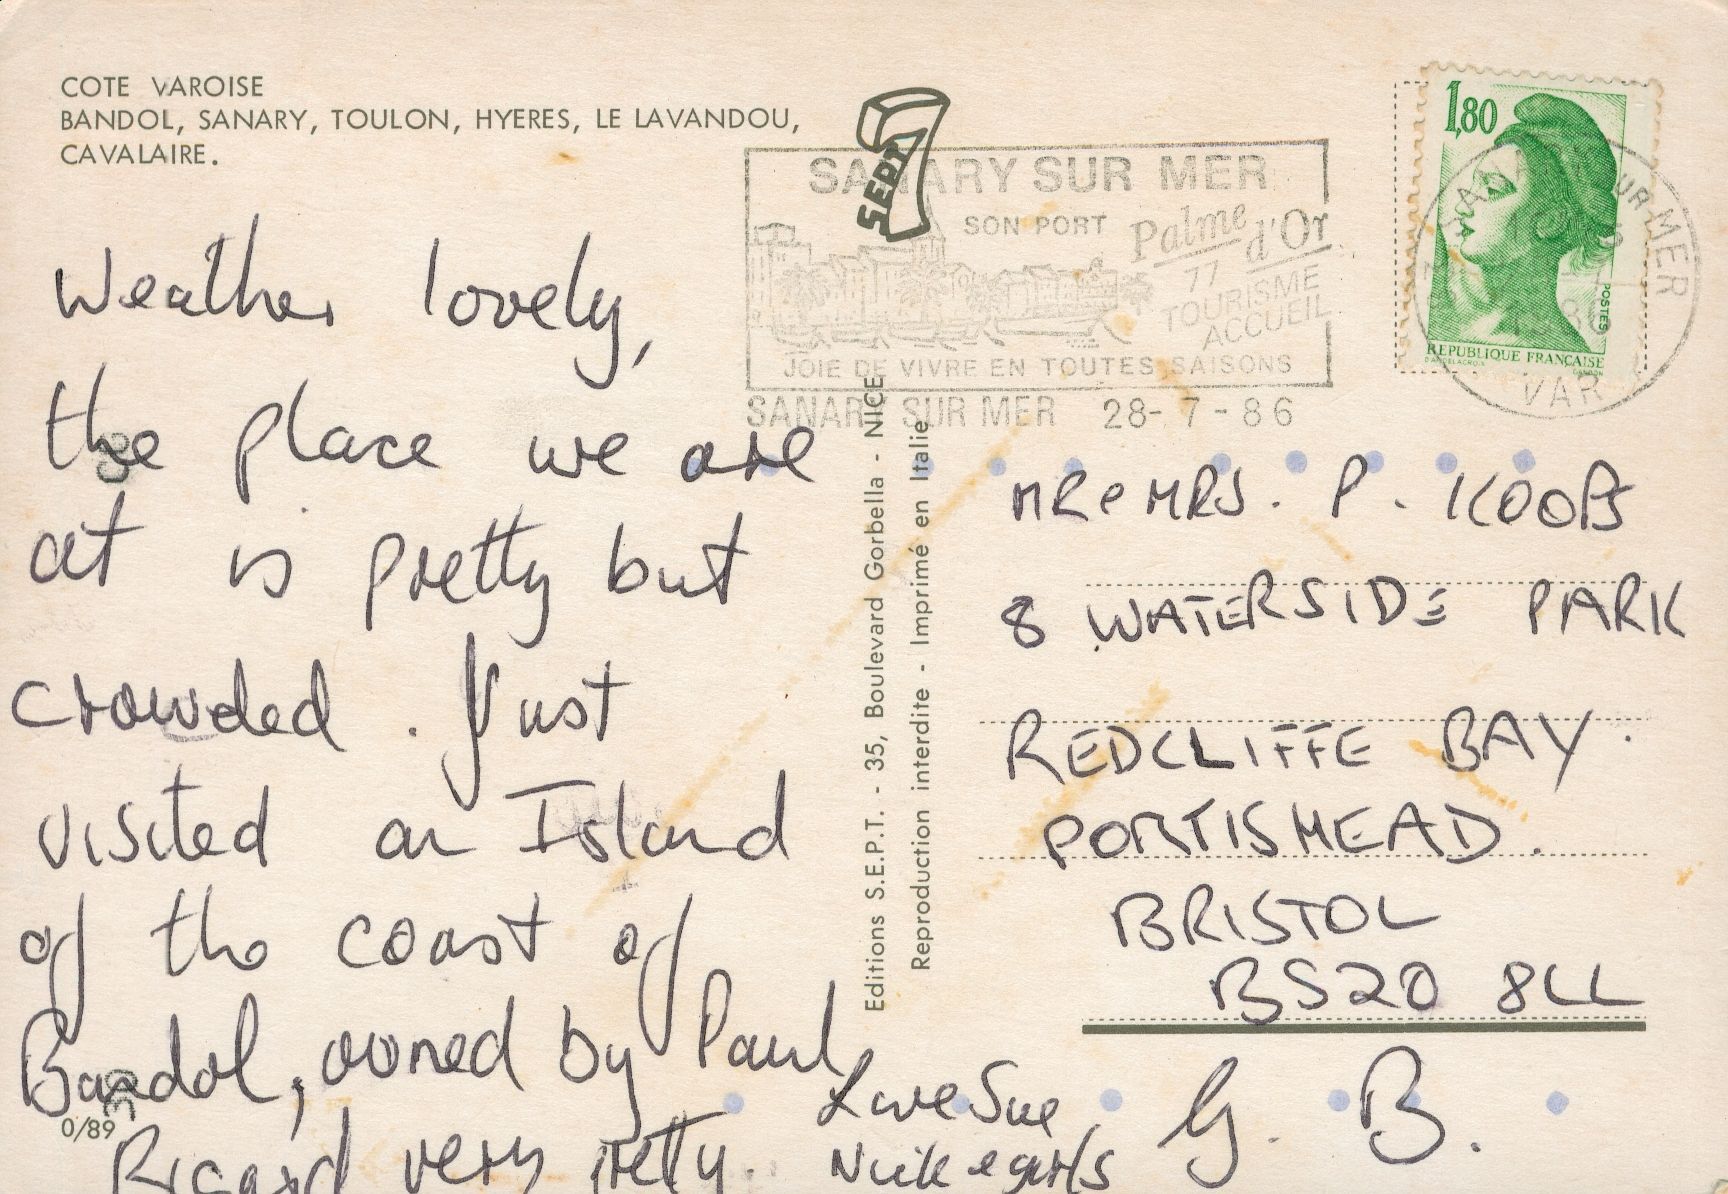 COTE VAROISE
BANDOL, SANARY, TOULON, HYERES, LE LAVANDOU,
CAVALAIRE.
7
SEPT
SANARY SUR MER
SON PORT
Palme d'Or
77
TOURISME
ACCUEIL
JOIE DE VIVRE EN TOUTES SAISONS
SANARY SUR MER 28-7-86
1,80
POSTES
REPUBLIQUE FRANÇAISE
SUR MER
1986
VAR
Weather lovely,
the place we are
at is pretty but
crowded. Just
visited an Island
of the coast of
Bandol, owned by Paul
Ricard very pretty.
Love Sue
Nick & girls
0/89
Editions S.E.P.T. - 35, Boulevard Gorbella - NICE
Reproduction interdite - Imprimé en Italie
MR & MRS. P. KOOBS
8 WATERSIDE PARK
REDCLIFFE BAY.
PORTISHEAD.
BRISTOL
BS20 8LL
G. B.